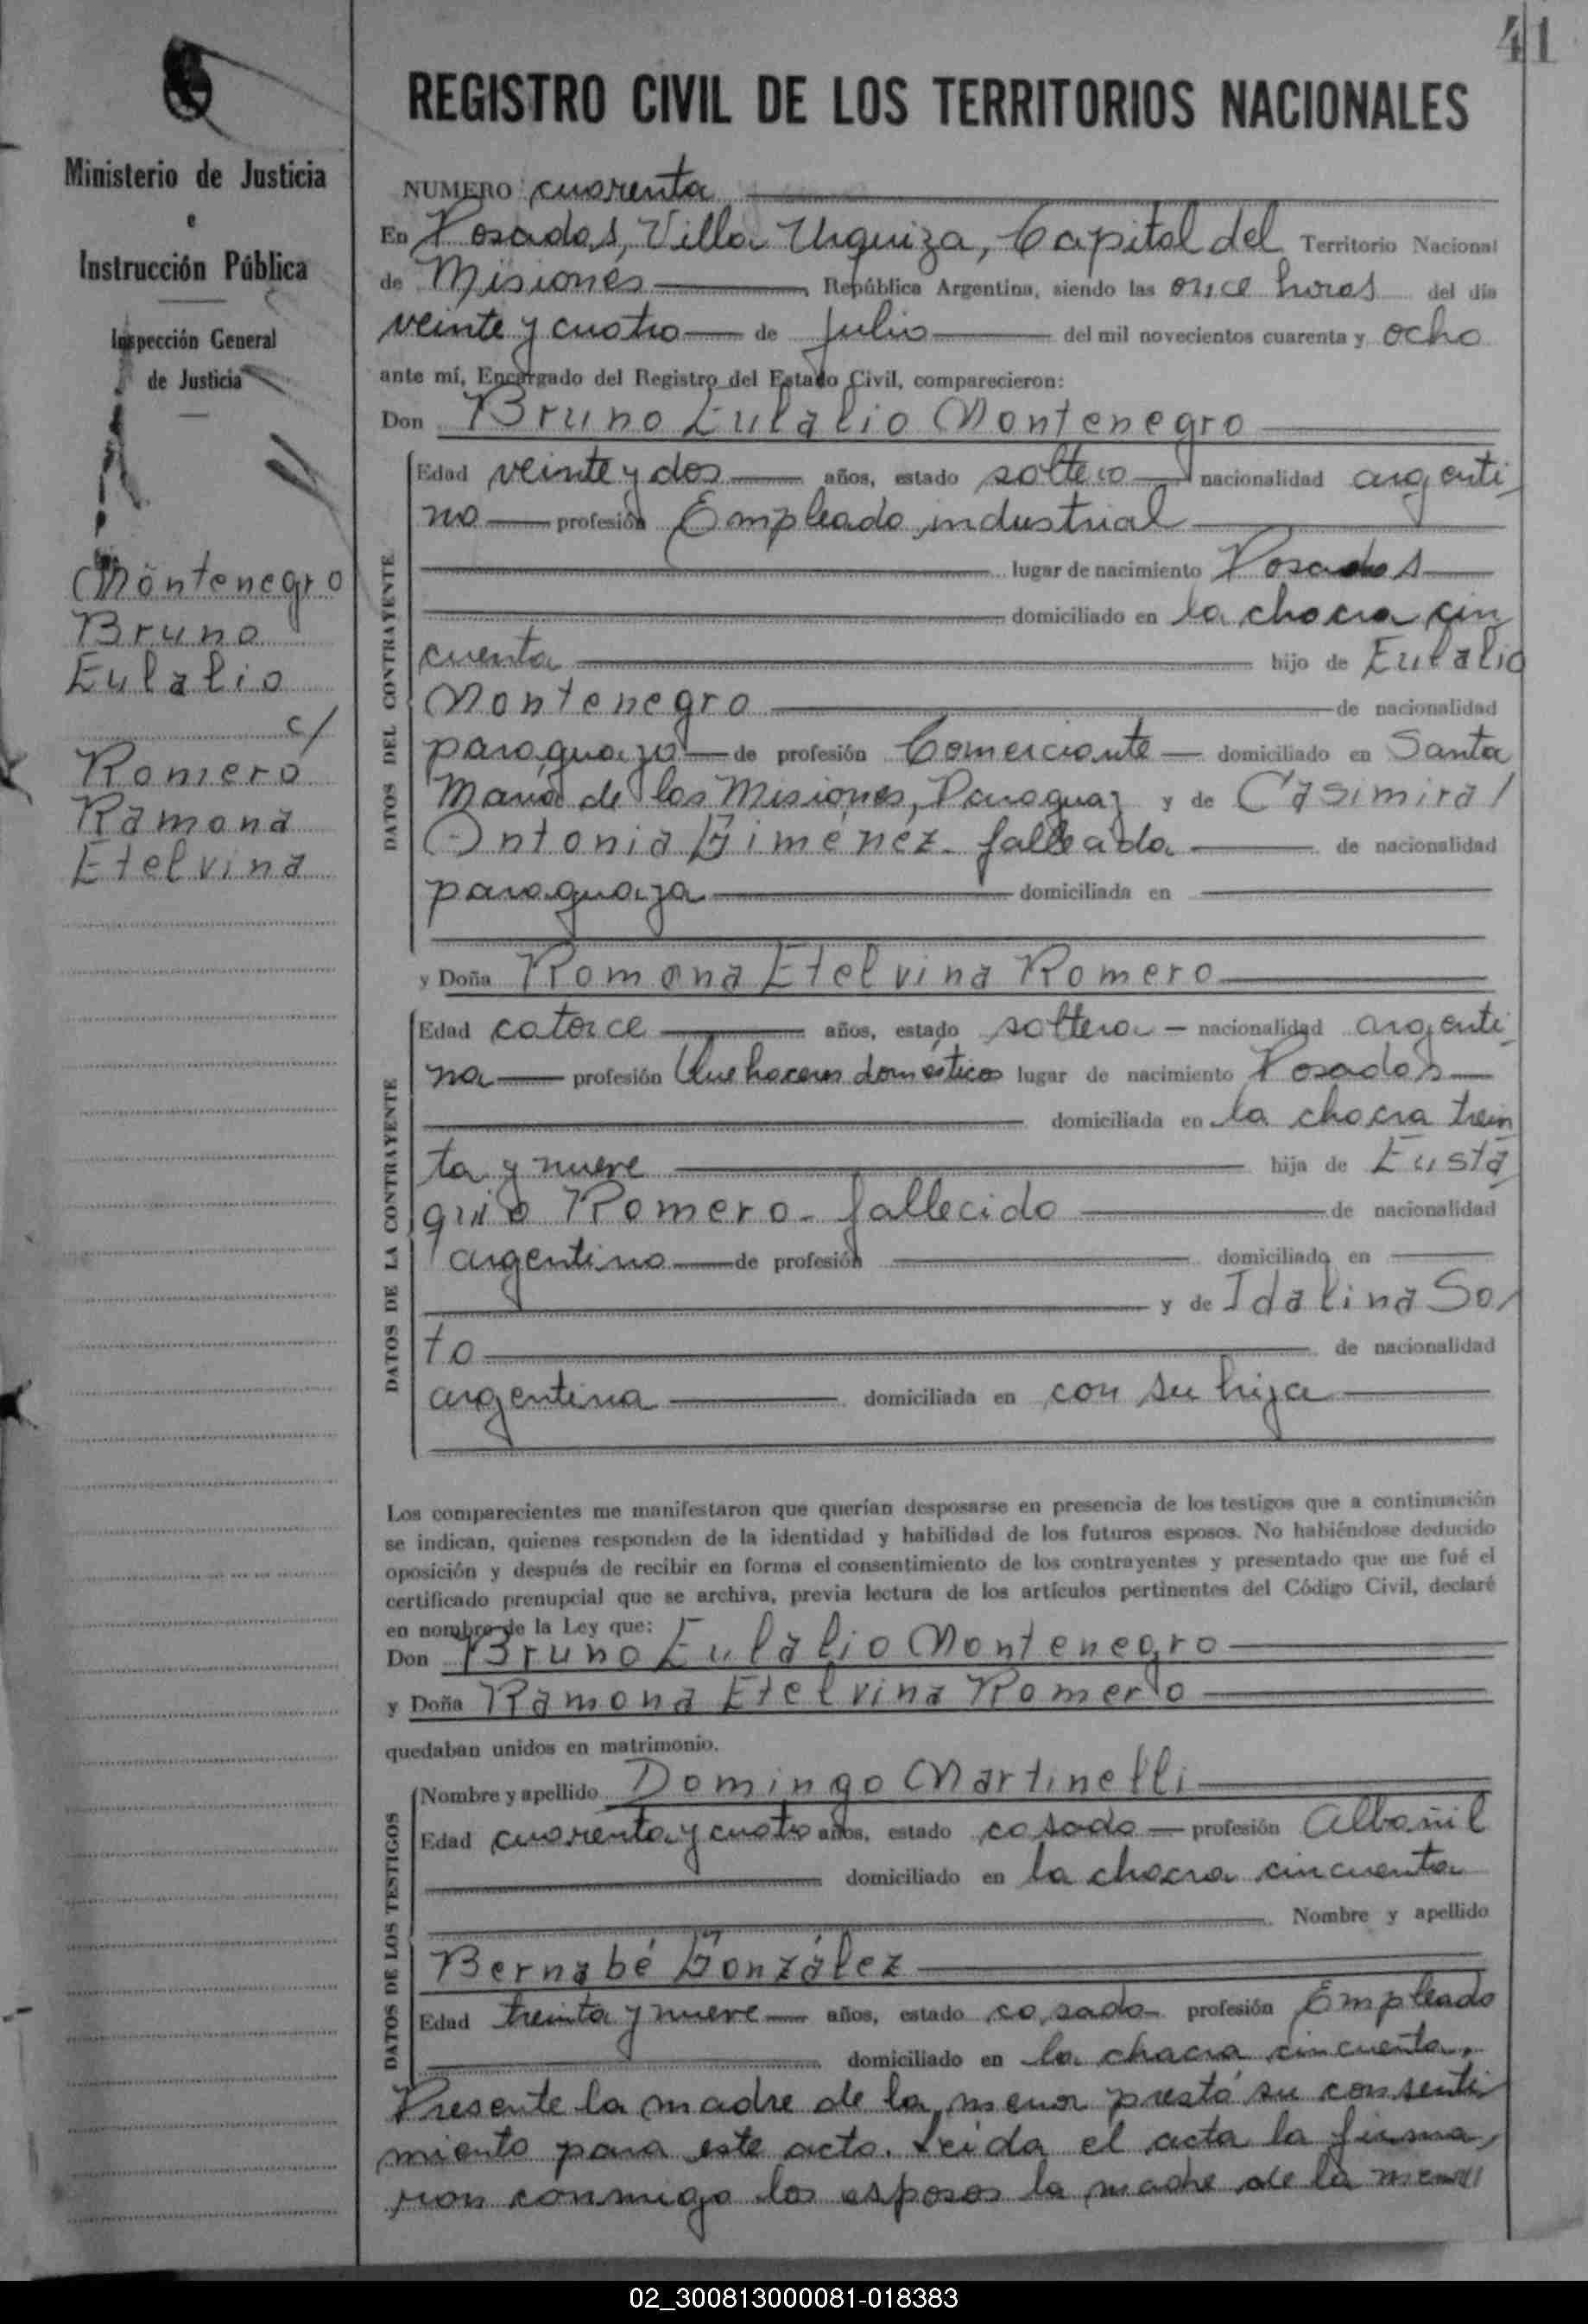 41
REGISTRO CIVIL DE LOS TERRITORIOS NACIONALES
Ministerio de Justicia
e
Instrucción Pública
Inspección General
de Justicia
Montenegro
Bruno
Eulalio
c/
Romero
Ramona
Etelvina
NUMERO cuarenta
En Posadas, Villa Urquiza, Capital del Territorio Nacional
de Misiones República Argentina, siendo las once horas del día
veinte y cuatro de julio del mil novecientos cuarenta y ocho
ante mí, Encargado del Registro del Estado Civil, comparecieron:
Don Bruno Eulalio Montenegro
DATOS DEL CONTRAYENTE
Edad veinte y dos años, estado soltero nacionalidad argenti
no profesión Empleado industrial
lugar de nacimiento Posadas
domiciliado en la chacra cin
cuenta hijo de Eulalio
Montenegro de nacionalidad
paraguayo de profesión Comerciante domiciliado en Santa
María de las Misiones, Paraguay y de Casimira
Antonia Giménéz - fallecida de nacionalidad
paraguaya domiciliada en
y Doña Ramona Etelvina Romero
DATOS DE LA CONTRAYENTE
Edad catorce años, estado soltera nacionalidad argenti
na profesión Quehaceres domésticos lugar de nacimiento Posadas
domiciliada en la chacra trein
ta y nueve hija de Eusta
quio Romero - fallecido de nacionalidad
argentino de profesión domiciliado en
y de Idalina So
to de nacionalidad
argentina domiciliada en con su hija
Los comparecientes me manifestaron que querían desposarse en presencia de los testigos que a continuación
se indican, quienes responden de la identidad y habilidad de los futuros esposos. No habiéndose deducido
oposición y después de recibir en forma el consentimiento de los contrayentes y presentado que me fué el
certificado prenupcial que se archiva, previa lectura de los artículos pertinentes del Código Civil, declaré
en nombre de la Ley que:
Don Bruno Eulalio Montenegro
y Doña Ramona Etelvina Romero
quedaban unidos en matrimonio.
DATOS DE LOS TESTIGOS
Nombre y apellido Domingo Martinelli
Edad cuarenta y cuatro años, estado casado profesión Albañil
domiciliado en la chacra cincuenta
Nombre y apellido
Bernabé González
Edad treinta y nueve años, estado casado profesión Empleado
domiciliado en la chacra cincuenta.
Presente la madre de la menor prestó su consenti
miento para este acto. Leida el acta la firma
ron conmigo los esposos la madre de la menor
02_300813000081-018383